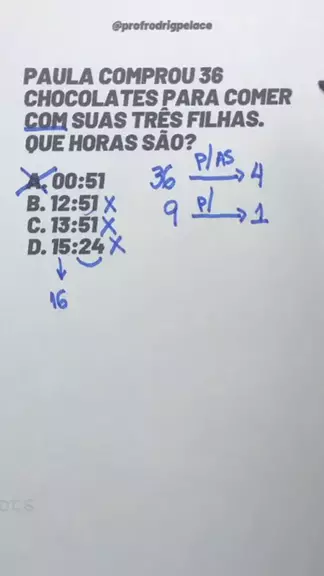 @profrodrigpelace
PAULA COMPROU 36
CHOCOLATES PARA COMER
COM SUAS TRÊS FILHAS.
QUE HORAS SÃO?
A. 00:51
B. 12:51 X
C. 13:51 X
D. 15:24 X
16
36 P/AS → 4
9 P/ → 1